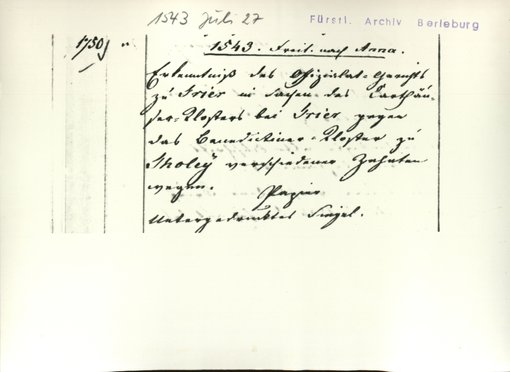 1543 Juli 27
Fürstl. Archiv Berleburg
1750j "
1543. Freit. nach Anna.
Erkenntniß des Offizialat-Gerichts
zu Trier in Sachen des Carthäu-
ser-Klosters bei Trier gegen
das Benedictiner-Kloster zu
Tholey verschiedener Zehnten
wegen.
Papier
Untergedrucktes Siegel.